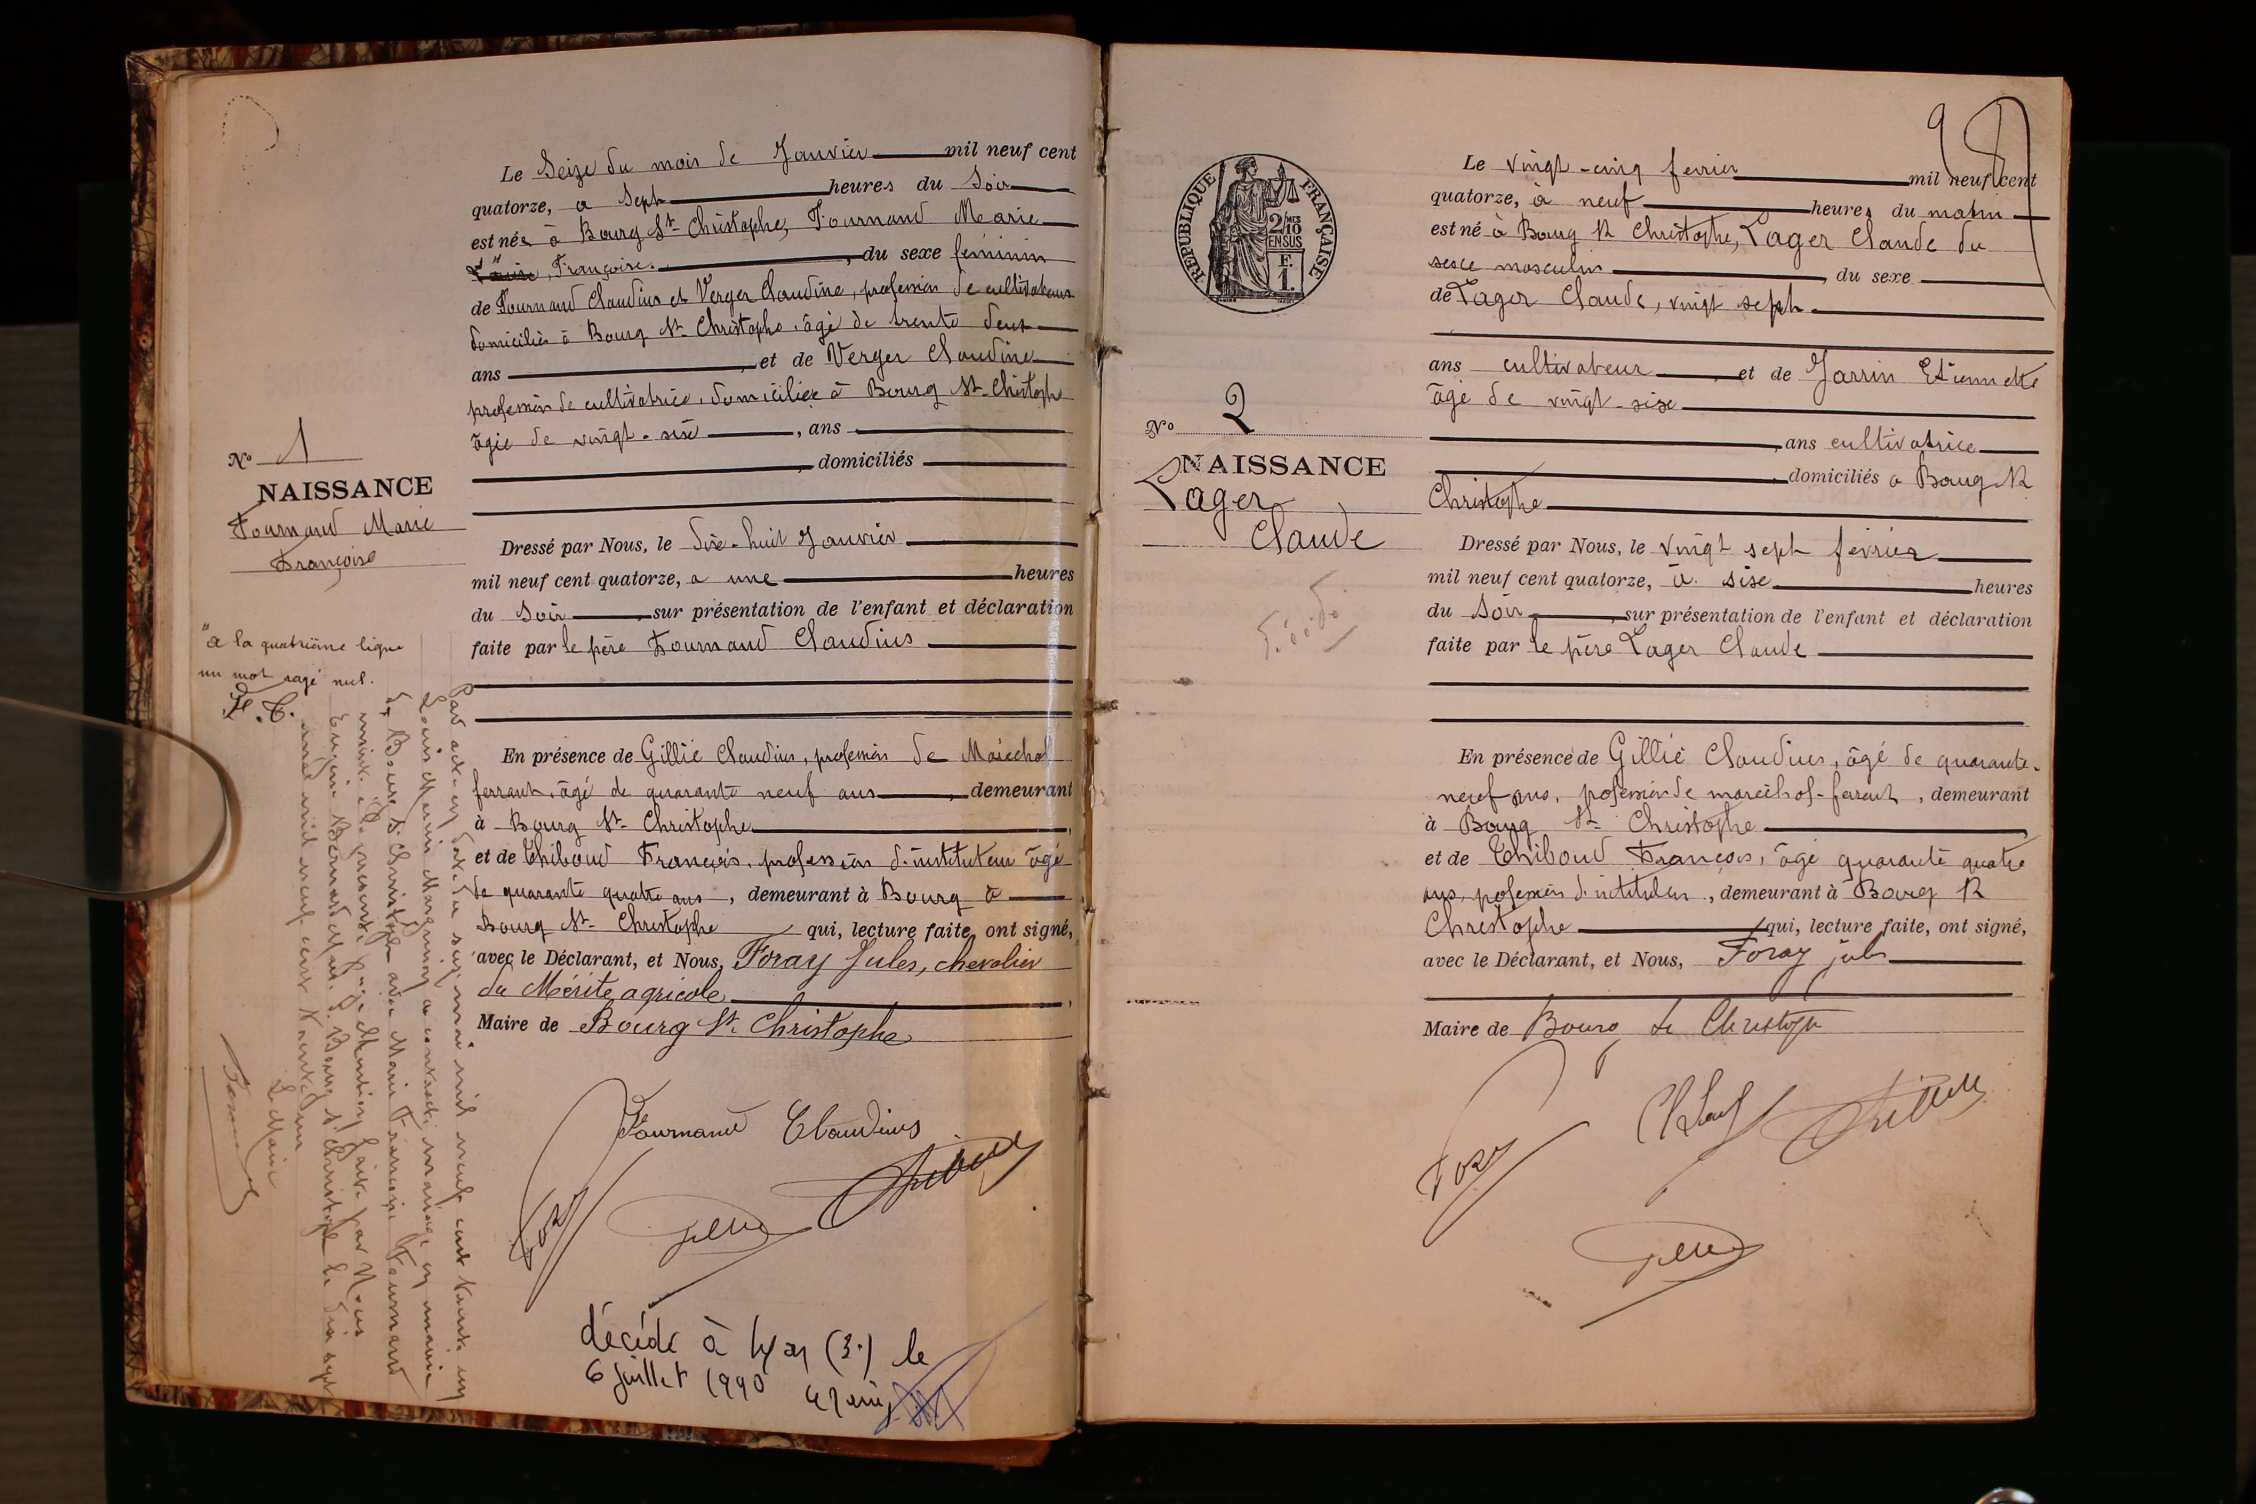 Le Seize du mois de Janvier mil neuf cent
quatorze, a Sept heures du Soir
est née à Bourg St Christophe, Fournand Marie
Françoise. , du sexe féminin
de Fournand Claudius et Verger Claudine, profession de cultivateurs
domiciliés à Bourg St Christophe, âgé de trente deux
ans et de Verger Claudine
profession de cultivatrice, domiciliée à Bourg St Christophe
âgée de vingt-six , ans
, domiciliés
Dressé par Nous, le dix-huit Janvier
mil neuf cent quatorze, a une heures
du Soir , sur présentation de l'enfant et déclaration
faite par le père Fournand Claudius
En présence de Gillié Claudius, profession de Maréchal
ferrant, âgé de quarante neuf ans , demeurant
à Bourg St Christophe ,
et de Thiboud François, profession d'instituteur âgé
de quarante quatre ans , demeurant à Bourg à
Bourg St Christophe qui, lecture faite, ont signé,
avec le Déclarant, et Nous, Foray Jules, chevalier
du Mérite agricole ,
Maire de Bourg St Christophe
Fournand Claudius
Foray
Gillié
décédé à Lyon (3e) le
6 juillet 1990
No 1
NAISSANCE
Fournand Marie
Françoise
"à la quatrième ligne
un mot rayé nul.
F. C.
Par acte en date du six mai mil neuf cent trente un
Louis Marin a contracté mariage en mairie
de Bourg St Christophe avec Marie Françoise Fournand
mention faite par Nous
Eugène Bernard Maire de Bourg St Christophe le dix sept
mil neuf cent trente un
Le Maire
2
RÉPUBLIQUE FRANÇAISE
2/10MES
EN SUS
F.
1.
No 2
NAISSANCE
Lager
Claude
Le vingt-cinq fevrier mil neuf cent
quatorze, à neuf heures du matin
est né à Bourg St Christophe, Lager Claude du
sexe masculin , du sexe
de Lager Claude, vingt sept
ans cultivateur , et de Jarrin Etiennette
âgé de vingt-six
, ans cultivatrice
, domiciliés a Bourg St
Christophe
Dressé par Nous, le vingt sept février
mil neuf cent quatorze, à six heures
du Soir , sur présentation de l'enfant et déclaration
faite par le père Lager Claude
En présence de Gillié Claudius, âgé de quarante-
neuf ans, profession de maréchal-ferrant , demeurant
à Bourg St Christophe ,
et de Thiboud François, âgé quarante quatre
ans, profession d'instituteur , demeurant à Bourg St
Christophe qui, lecture faite, ont signé,
avec le Déclarant, et Nous, Foray jules
Maire de Bourg St Christophe
Foray
Gillié